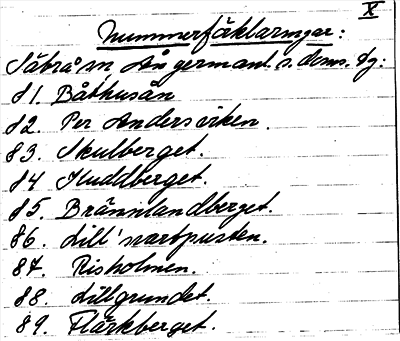 X
Nummerförklaringar:
Säbrå sn, Ångermanl. s. doms. dg:
81. Båthusån
82. Per Andersviken.
83. Skulberget.
84 Huddberget.
85. Brännlandberget.
86. Lill'svartpusten.
87. Risholmen.
88. Lillgrundet.
89. Flärkberget.